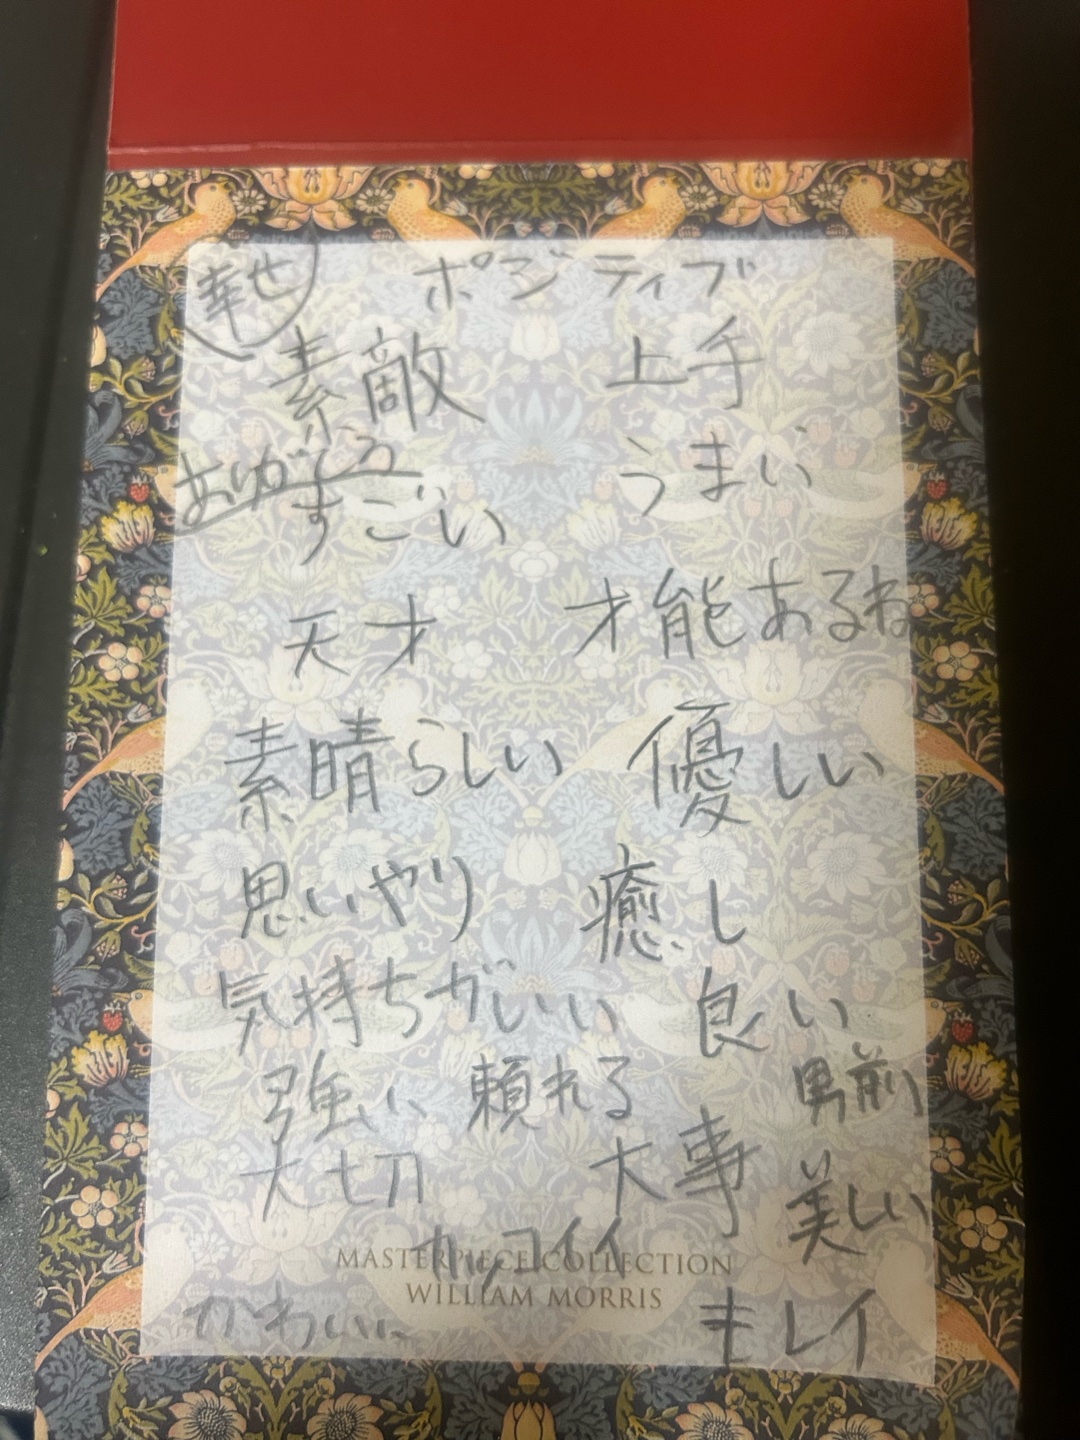 幸せ ポジティブ
素敵 上手
ありがとう
すごい うまい
天才 才能あるね
素晴らしい 優しい
思いやり 癒し
気持ちがいい 良い
強い 頼れる 男前
大切 大事 美しい
カッコイイ
MASTERPIECE COLLECTION
WILLIAM MORRIS
かわいい キレイ